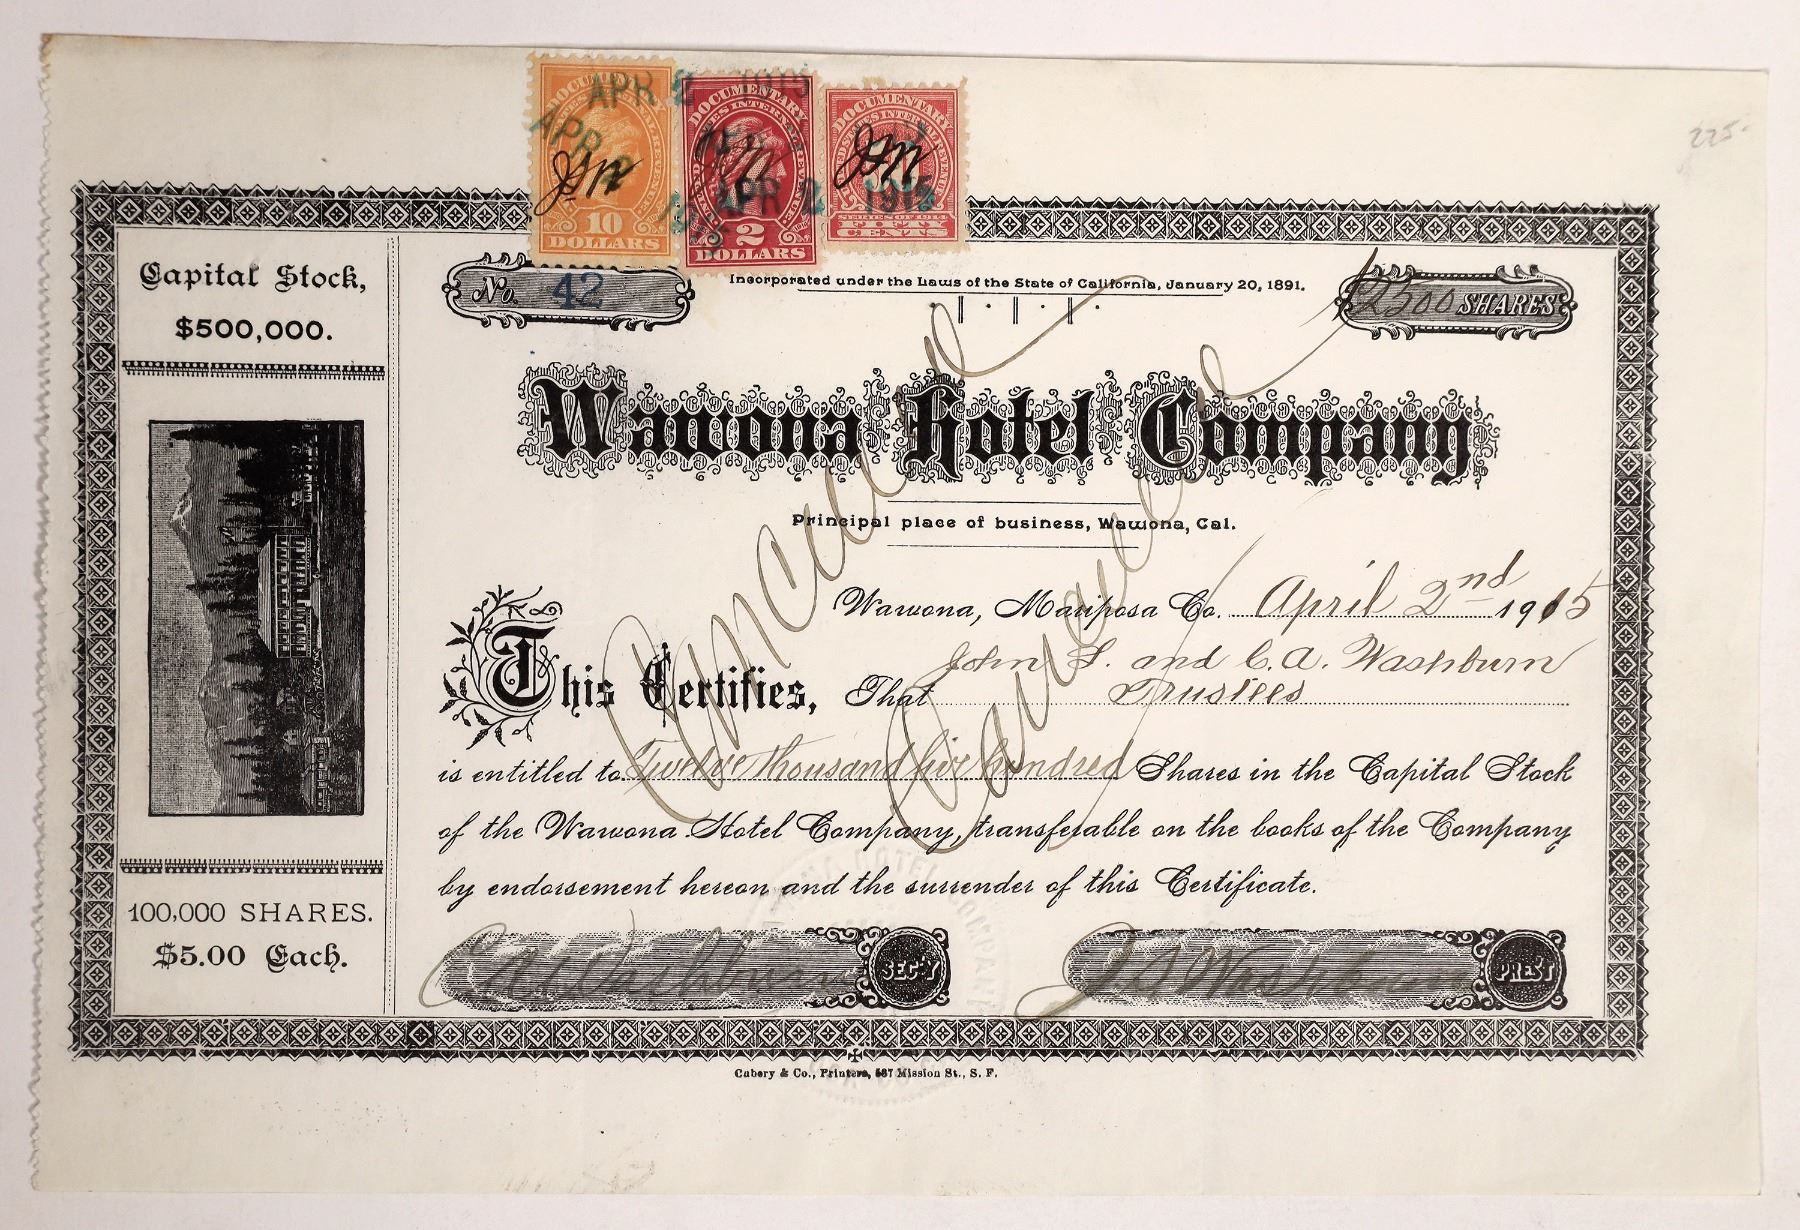 225-
DOCUMENTARY
10
DOLLARS
APR 2 1915
DOCUMENTARY
2
DOLLARS
APR 2 1915
DOCUMENTARY
UNITED STATES INTERNAL REVENUE
SERIES OF 1914
FIFTY
CENTS
Capital Stock,
$500,000.
No. 42
Incorporated under the Laws of the State of California, January 20, 1891.
12500 SHARES
Wawona Hotel Company
Principal place of business, Wawona, Cal.
Wawona, Mariposa Co. April 2nd 1915
John S. and C.A. Washburn
This Certifies, That Trustees
is entitled to Twelve thousand five hundred Shares in the Capital Stock
of the Wawona Hotel Company, transferable on the books of the Company
by endorsement hereon and the surrender of this Certificate.
Cancelled
Cancelled
100,000 SHARES.
$5.00 Each.
C A Washburn SEC'Y
J S Washburn PREST
Cubery & Co., Printers, 587 Mission St., S. F.